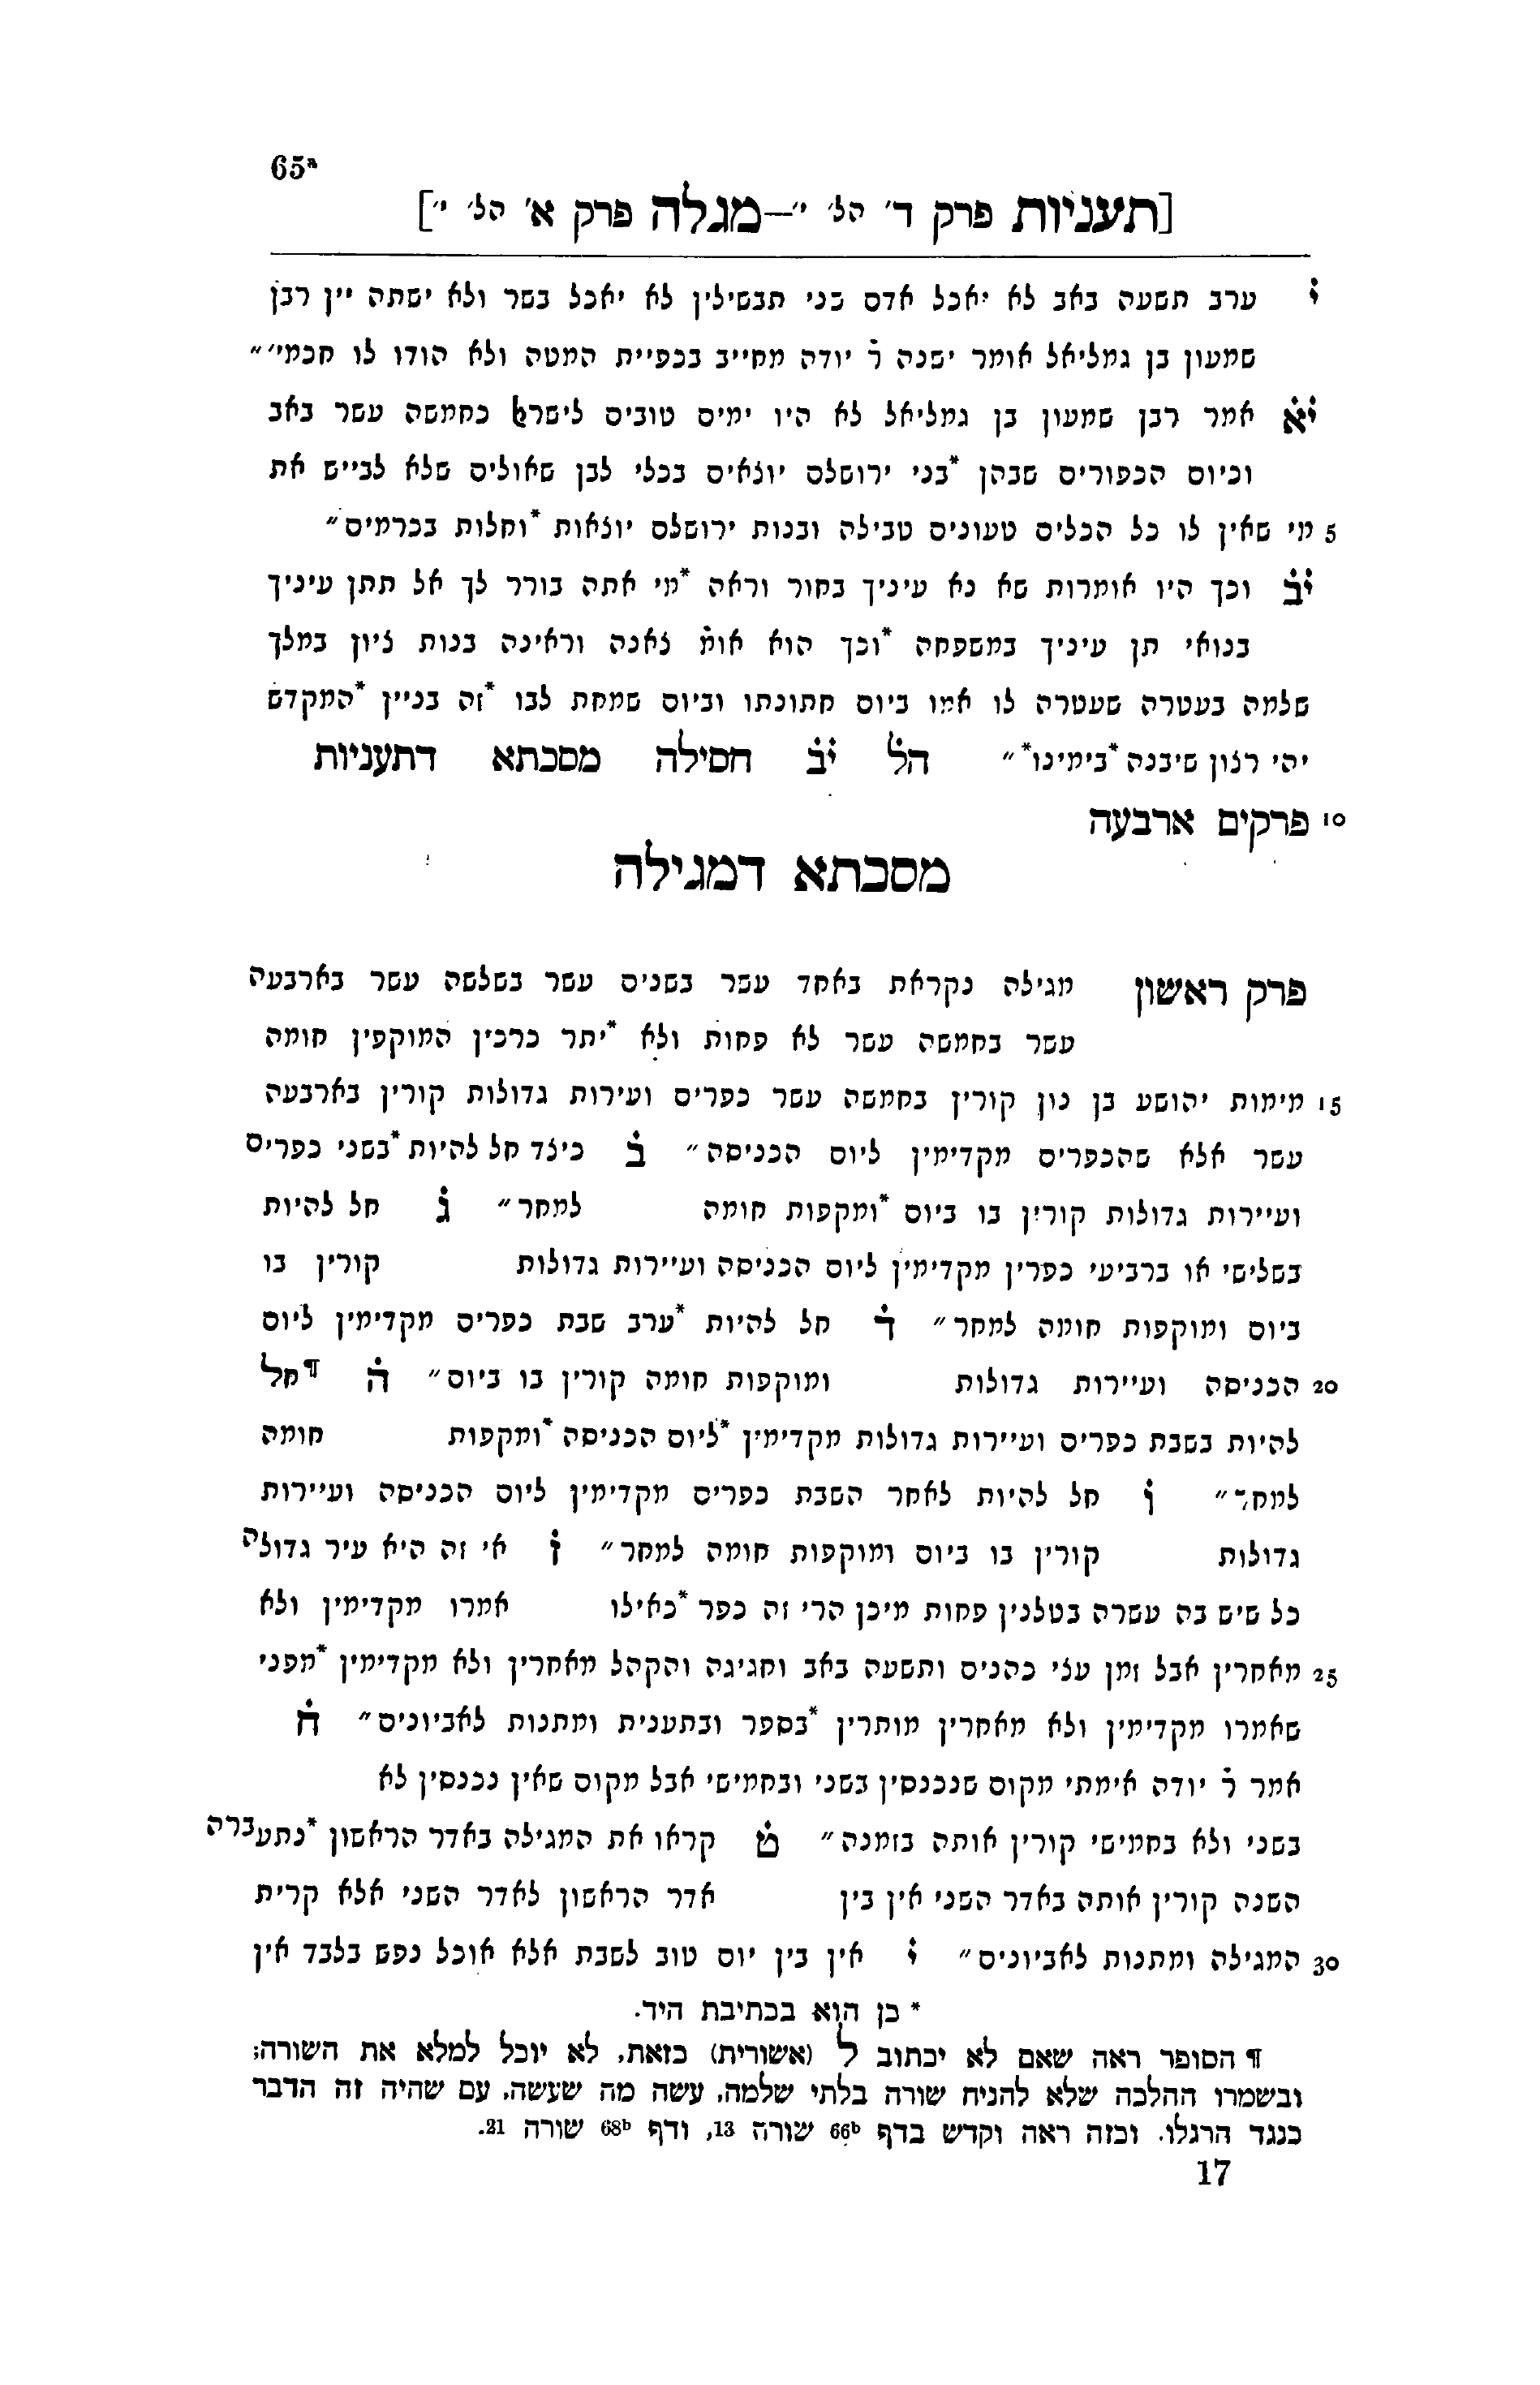 65ᵃ
[תעניות פרק ד׳ הל׳ י׳׳—מגלה פרק א׳ הל׳ י׳׳]
י ערב תשעה באב לא יאכל אדם שני תבשילין לא יאכל בשר ולא ישתה יין רבן
שמעון בן גמליאל אומר ישנה ר׳ יודה מחייב בכפיית המטה ולא הודו לו חכמי׳״
יא אמר רבן שמעון בן גמליאל לא היו ימים טובים לישרﭏ כחמשה עשר באב
וכיום הכפורים שבהן *בני ירושלם יוצאים בכלי לבן שאולים שלא לבייש את
5 מי שאין לו כל הכלים טעונים טבילה ובנות ירושלם יוצאות *וחלות בכרמים״
יב וכך היו אומרות שא נא עיניך בחור וראה *מי אתה בורר לך אל תתן עיניך
בנואי תן עיניך במשפחה *וכך הוא אומ׳ צאנה וראינה בנות ציון במלך
שלמה בעטרה שעטרה לו אמו ביום חתונתו וביום שמחת לבו *זה בניין *המקדש
יהי רצון שיבנה *בימינו*״ הל׳ יב חסילה מסכתא דתעניות
10 פרקים ארבעה
מסכתא דמגילה
פרק ראשון מגילה נקראת באחד עשר בשנים עשר בשלשה עשר בארבעה
עשר בחמשה עשר לא פחות ולא *יתר כרכין המוקפין חומה
15 מימות יהושע בן נון קורין בחמשה עשר כפרים ועירות גדולות קורין בארבעה
עשר אלא שהכפרים מקדימין ליום הכניסה״ ב כיצד חל להיות *בשני כפרים
ועיירות גדולות קורין בו ביום *ומקפות חומה למחר״ ג חל להיות
בשלישי או ברביעי כפרין מקדימין ליום הכניסה ועיירות גדולות קורין בו
ביום ומוקפות חומה למחר״ ד חל להיות *ערב שבת כפרים מקדימין ליום
20 הכניסה ועיירות גדולות ומוקפות חומה קורין בו ביום״ ה ¶חל
להיות בשבת כפרים ועיירות גדולות מקדימין *ליום הכניסה *ומקפות חומה
למחר״ ו חל להיות לאחר השבת כפרים מקדימין ליום הכניסה ועיירות
גדולות קורין בו ביום ומוקפות חומה למחר״ ז אי זה היא עיר גדולה
כל שיש בה עשרה בטלנין פחות מיכן הרי זה כפר *כאילו אמרו מקדימין ולא
25 מאחרין אבל זמן עצי כהנים ותשעה באב וחגיגה והקהל מאחרין ולא מקדימין *מפני
שאמרו מקדימין ולא מאחרין מותרין *בספר ובתענית ומתנות לאביונים״ ח
אמר ר׳ יודה אימתי מקום שנכנסין בשני ובחמישי אבל מקום שאין נכנסין לא
בשני ולא בחמישי קורין אותה בזמנה״ ט קראו את המגילה באדר הראשון *נתעברה
השנה קורין אותה באדר השני אין בין אדר הראשון לאדר השני אלא קרית
30 המגילה ומתנות לאביונים״ י אין בין יום טוב לשבת אלא אוכל נפש בלבד אין
* כן הוא בכתיבת היד.
¶ הסופר ראה שאם לא יכתוב ל (אשורית) כזאת, לא יוכל למלא את השורה;
ובשמרו ההלכה שלא להניח שורה בלתי שלמה, עשה מה שעשה, עם שהיה זה הדבר
כנגד הרגלו. וכזה ראה וקדש בדף 66ᵇ שורה 13, ודף 68ᵇ שורה 21.
17